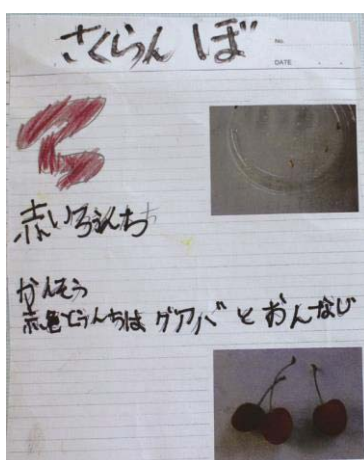 さくらんぼ
No.
DATE
赤いろうんち
かんそう
赤色とうんちは グアバ と おんなじ